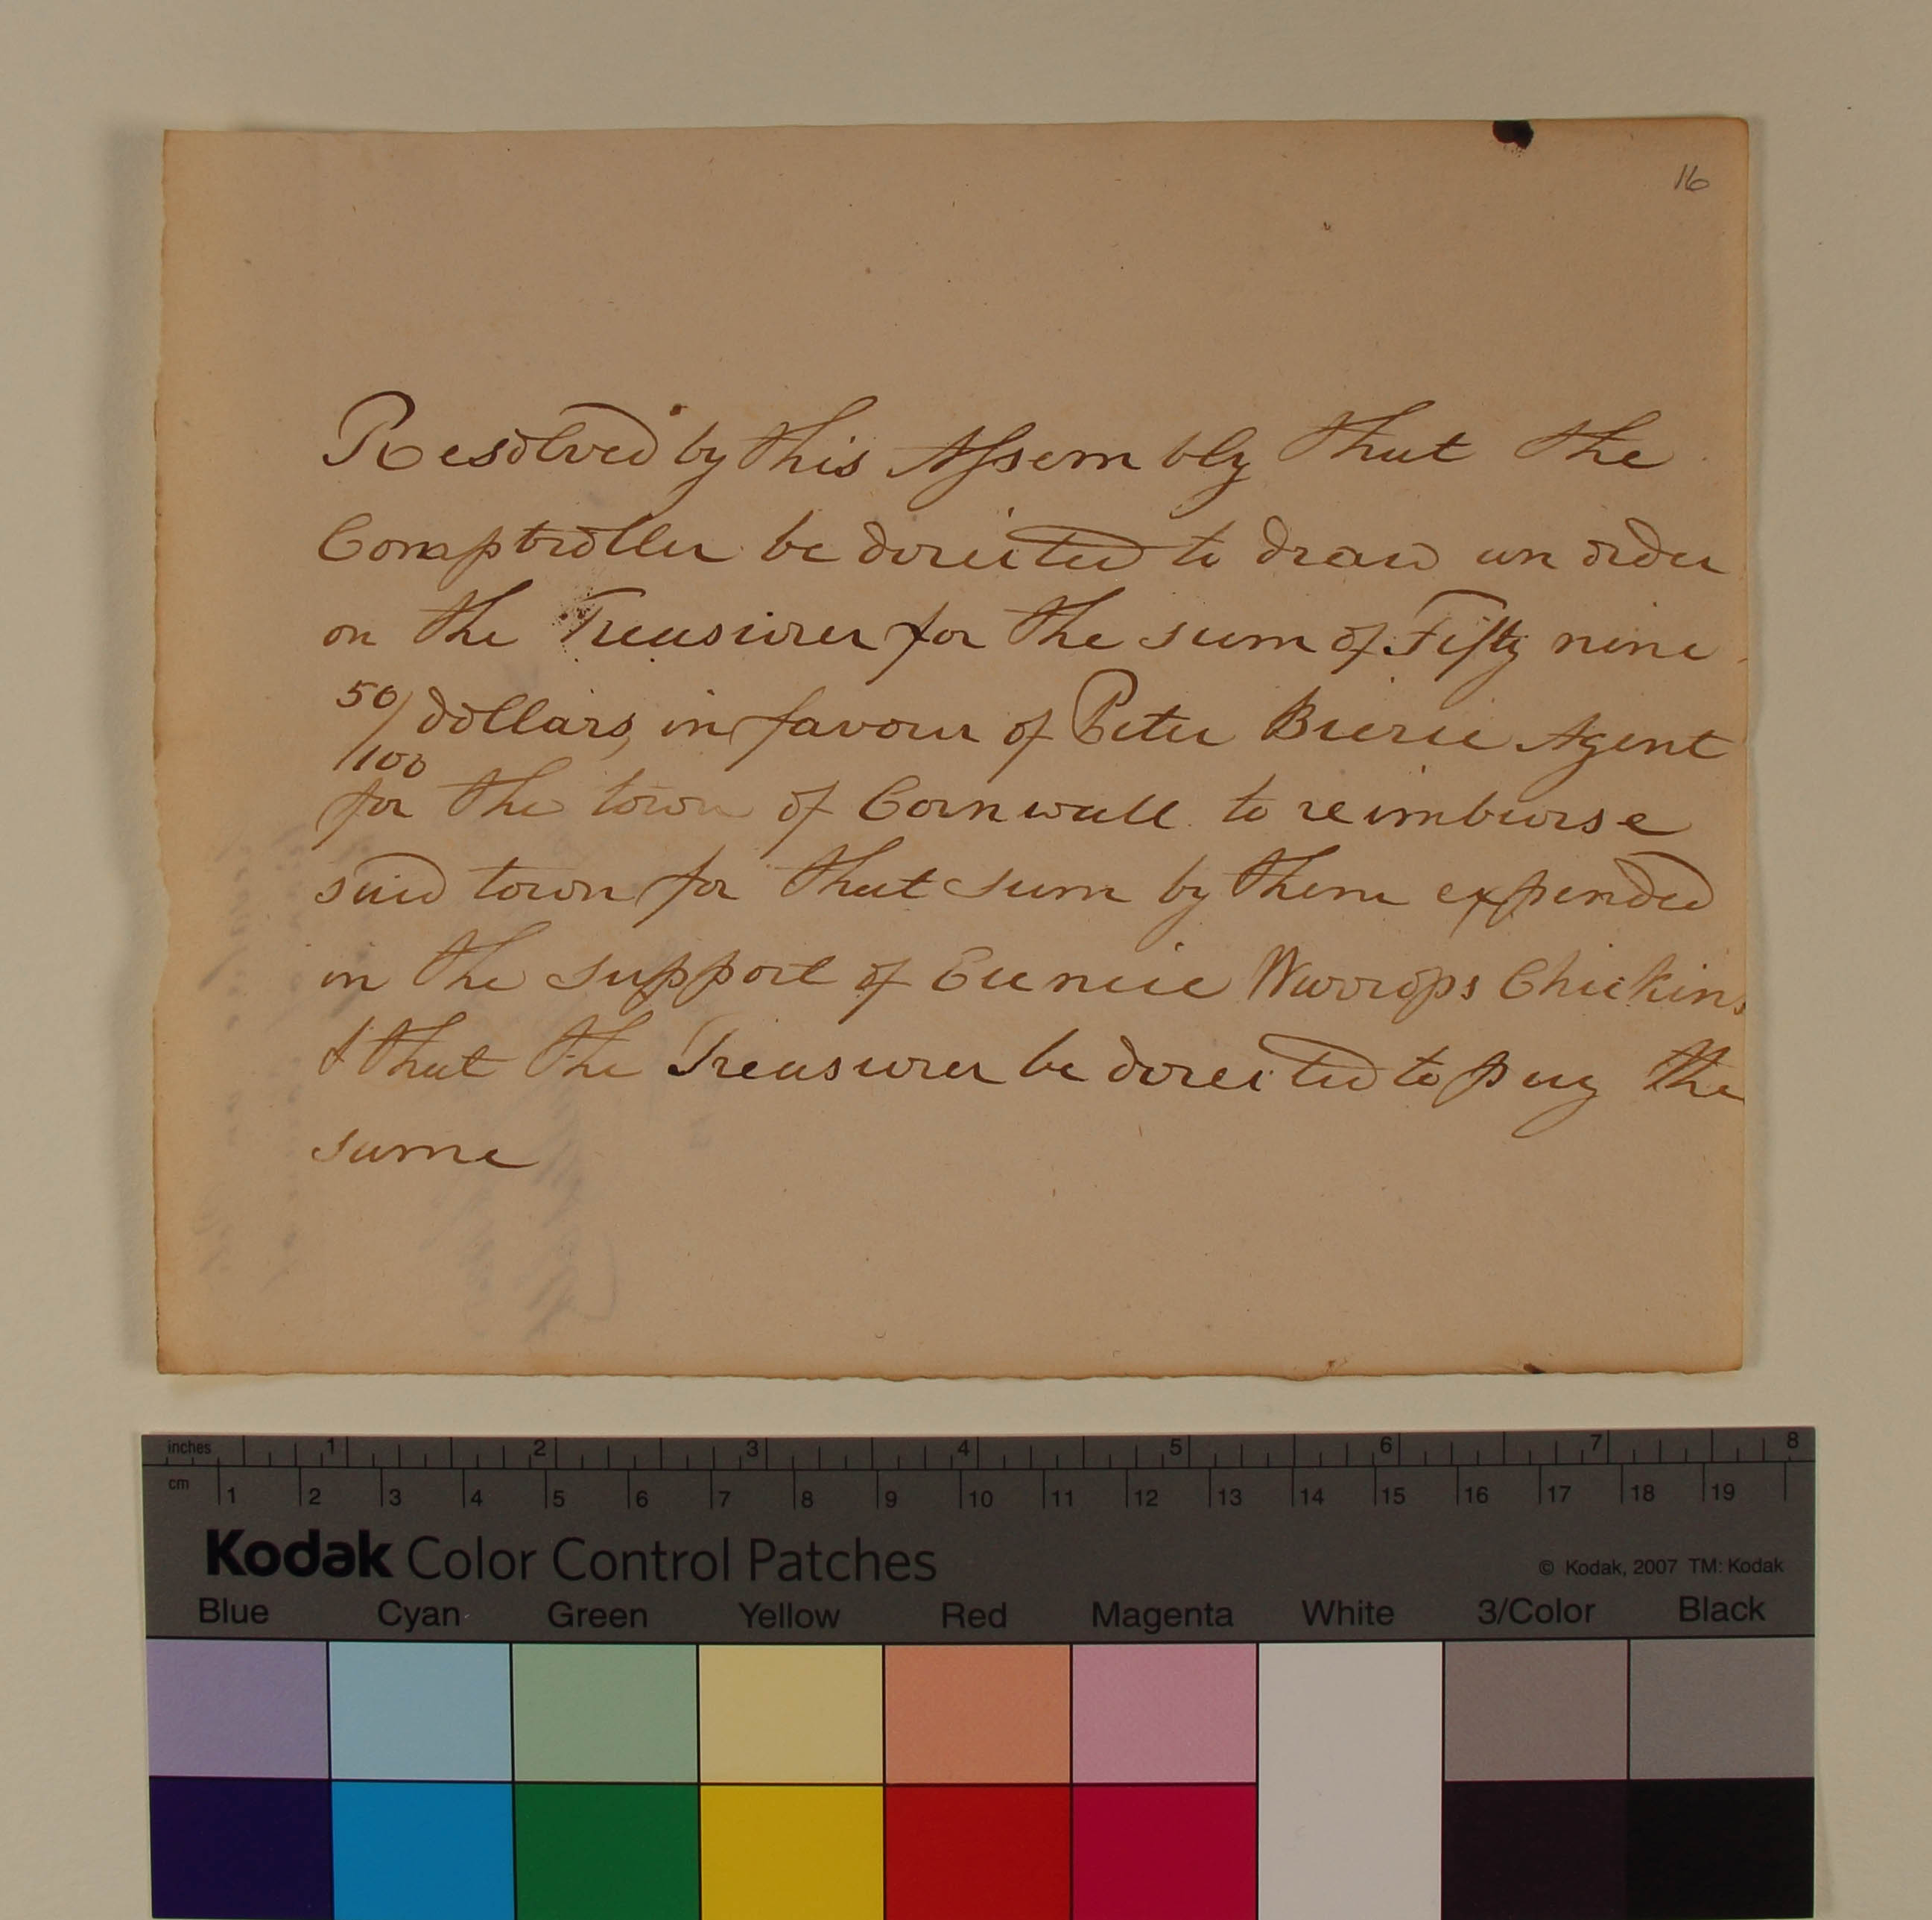 16
Resolved by this Assembly that the
Comptroller be directed to draw an order
on the Treasurer for the sum of Fifty nine
50/100 dollars, in favour of Peter Bierce Agent
for the town of Cornwall to reimburse
said town for that sum by them expended
in the support of Eunice Warrops Chickins
& that the Treasurer be directed to pay the
same
inches 1 2 3 4 5 6 7 8
cm 1 2 3 4 5 6 7 8 9 10 11 12 13 14 15 16 17 18 19
Kodak Color Control Patches
© Kodak, 2007 TM: Kodak
Blue Cyan Green Yellow Red Magenta White 3/Color Black